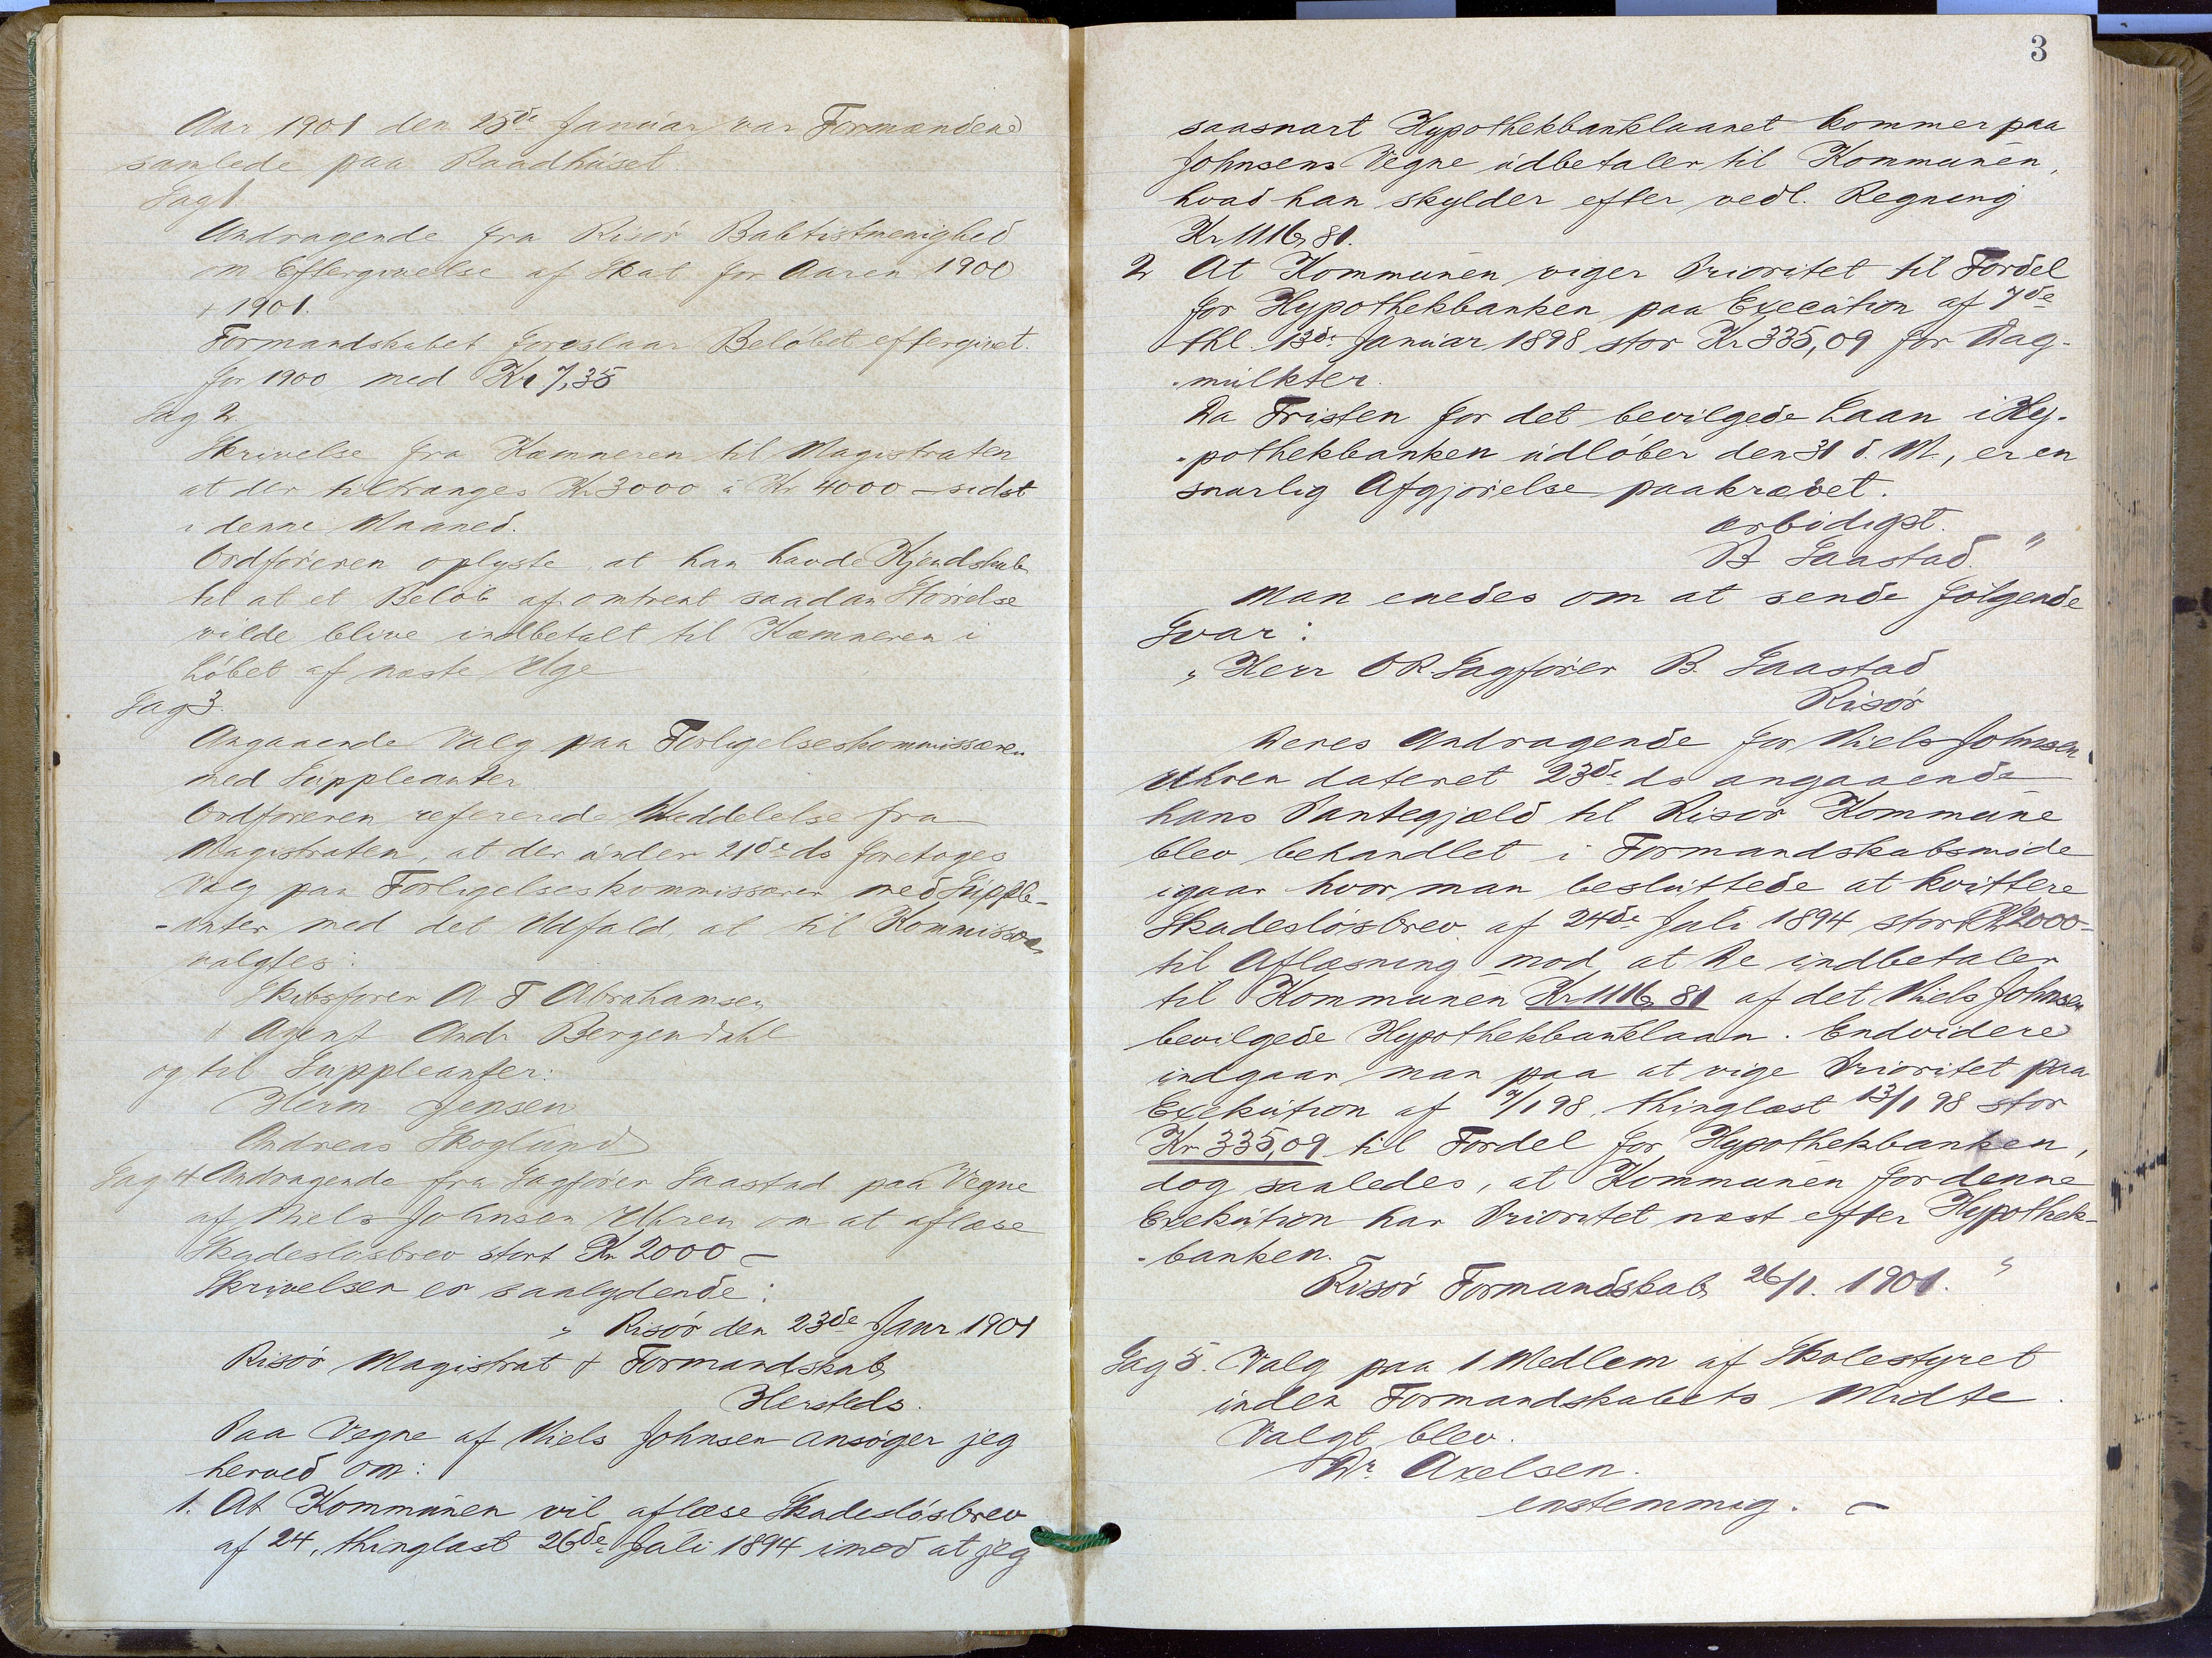 Aar 1901 den 25de Januar var Formændene
samlede paa Raadhuset.
Sag 1.
Andragende fra Risör Babtistmenighed
om Eftergivelse af Skat for Aaren 1900
+ 1901.
Formandskabet foreslaar Belöbet eftergivet.
for 1900 med Kr 7,35
Sag 2.
Skrivelse fra Kæmneren til Magistraten
at der tiltrænges Kr 3000 à Kr 4000 – sidst
i denne Maaned.
Ordföreren oplyste at han havde Kjendskab
til at et Belöb af omtrent saadan Störrelse
vilde blive indbetalt til Kæmneren i
Löbet af næste Uge
Sag 3.
Angaaende Valg paa Forligelseskommissærer
med Suppleanter
Ordföreren refererede Meddelelse fra
Magistraten, at der under 21de ds foretoges
Valg paa Forligelseskommissærer med Supple-
-anter med det Udfald, at til Kommissær
valgtes:
Skibsförer A T Abrahamsen
" Agent Andr Bergendahl
og til Suppleanter:
Herm Jensen
Andreas Skoglund
Sag 4 Andragende fra Sagförer Saastad paa Vegne
af Niels Johnsen Uhren om at aflæse
Skadeslösbrev stort Kr 2000 –
Skrivelsen er saalydende:
" Risör den 23de Janr 1901
Risör Magistrat & Formandskab
Hersteds.
Paa Vegne af Niels Johnsen ansöger jeg
herved om:
1. At Kommunen vil aflæse Skadeslösbrev
af 24, thinglæst 26de Juli 1894 imod at jeg
3
saasnart Hypothekbanklaanet kommer paa
Johnsens Vegne udbetaler til Kommunen,
hvad han skylder efter vedl. Regning
Kr 1116,81.
2 At Kommunen viger Prioritet til Fordel
for Hypothekbanken paa Execution af 7de
thl. 13de Januar 1898 stor Kr 335,09 for Dag-
-mulkter.
Da Fristen for det bevilgede Laan i Hy-
-pothekbanken udlöber den 31 d. M., er en
snarlig Afgjörelse paakrævet.
ærbödigst.
B Saastad. "
Man enedes om at sende fölgende
Svar:
" Herr O R Sagförer B. Saastad
Risör
Deres Andragende for Niels Johnsen
Uhren dateret 23de ds angaaende
hans Pantegjæld til Risör Kommune
blev behandlet i Formandskabsmöde
igaar hvor man besluttede at kvittere
Skadeslösbrev af 24de Juli 1894 stort Kr 2000–
til Aflæsning mod at De indbetaler
til Kommunen Kr 1116,81 af det Niels Johnsen
bevilgede Hypothekbanklaan. Endvidere
indgaar man paa at vige Prioritet paa
Exekution af 7/1 98, thinglæst 13/1 98 stor
Kr 335,09 til Fordel for Hypothekbanken,
dog saaledes, at Kommunen for denne
Exekution har Prioritet næst efter Hypothek-
-banken.
Risör Formandskab 26/1. 1901. "
Sag 5. Valg paa 1 Medlem af Skolestyret
inden Formandskabets Midte.
Valgt blev.
Dr. Axelsen.
enstemmig. –